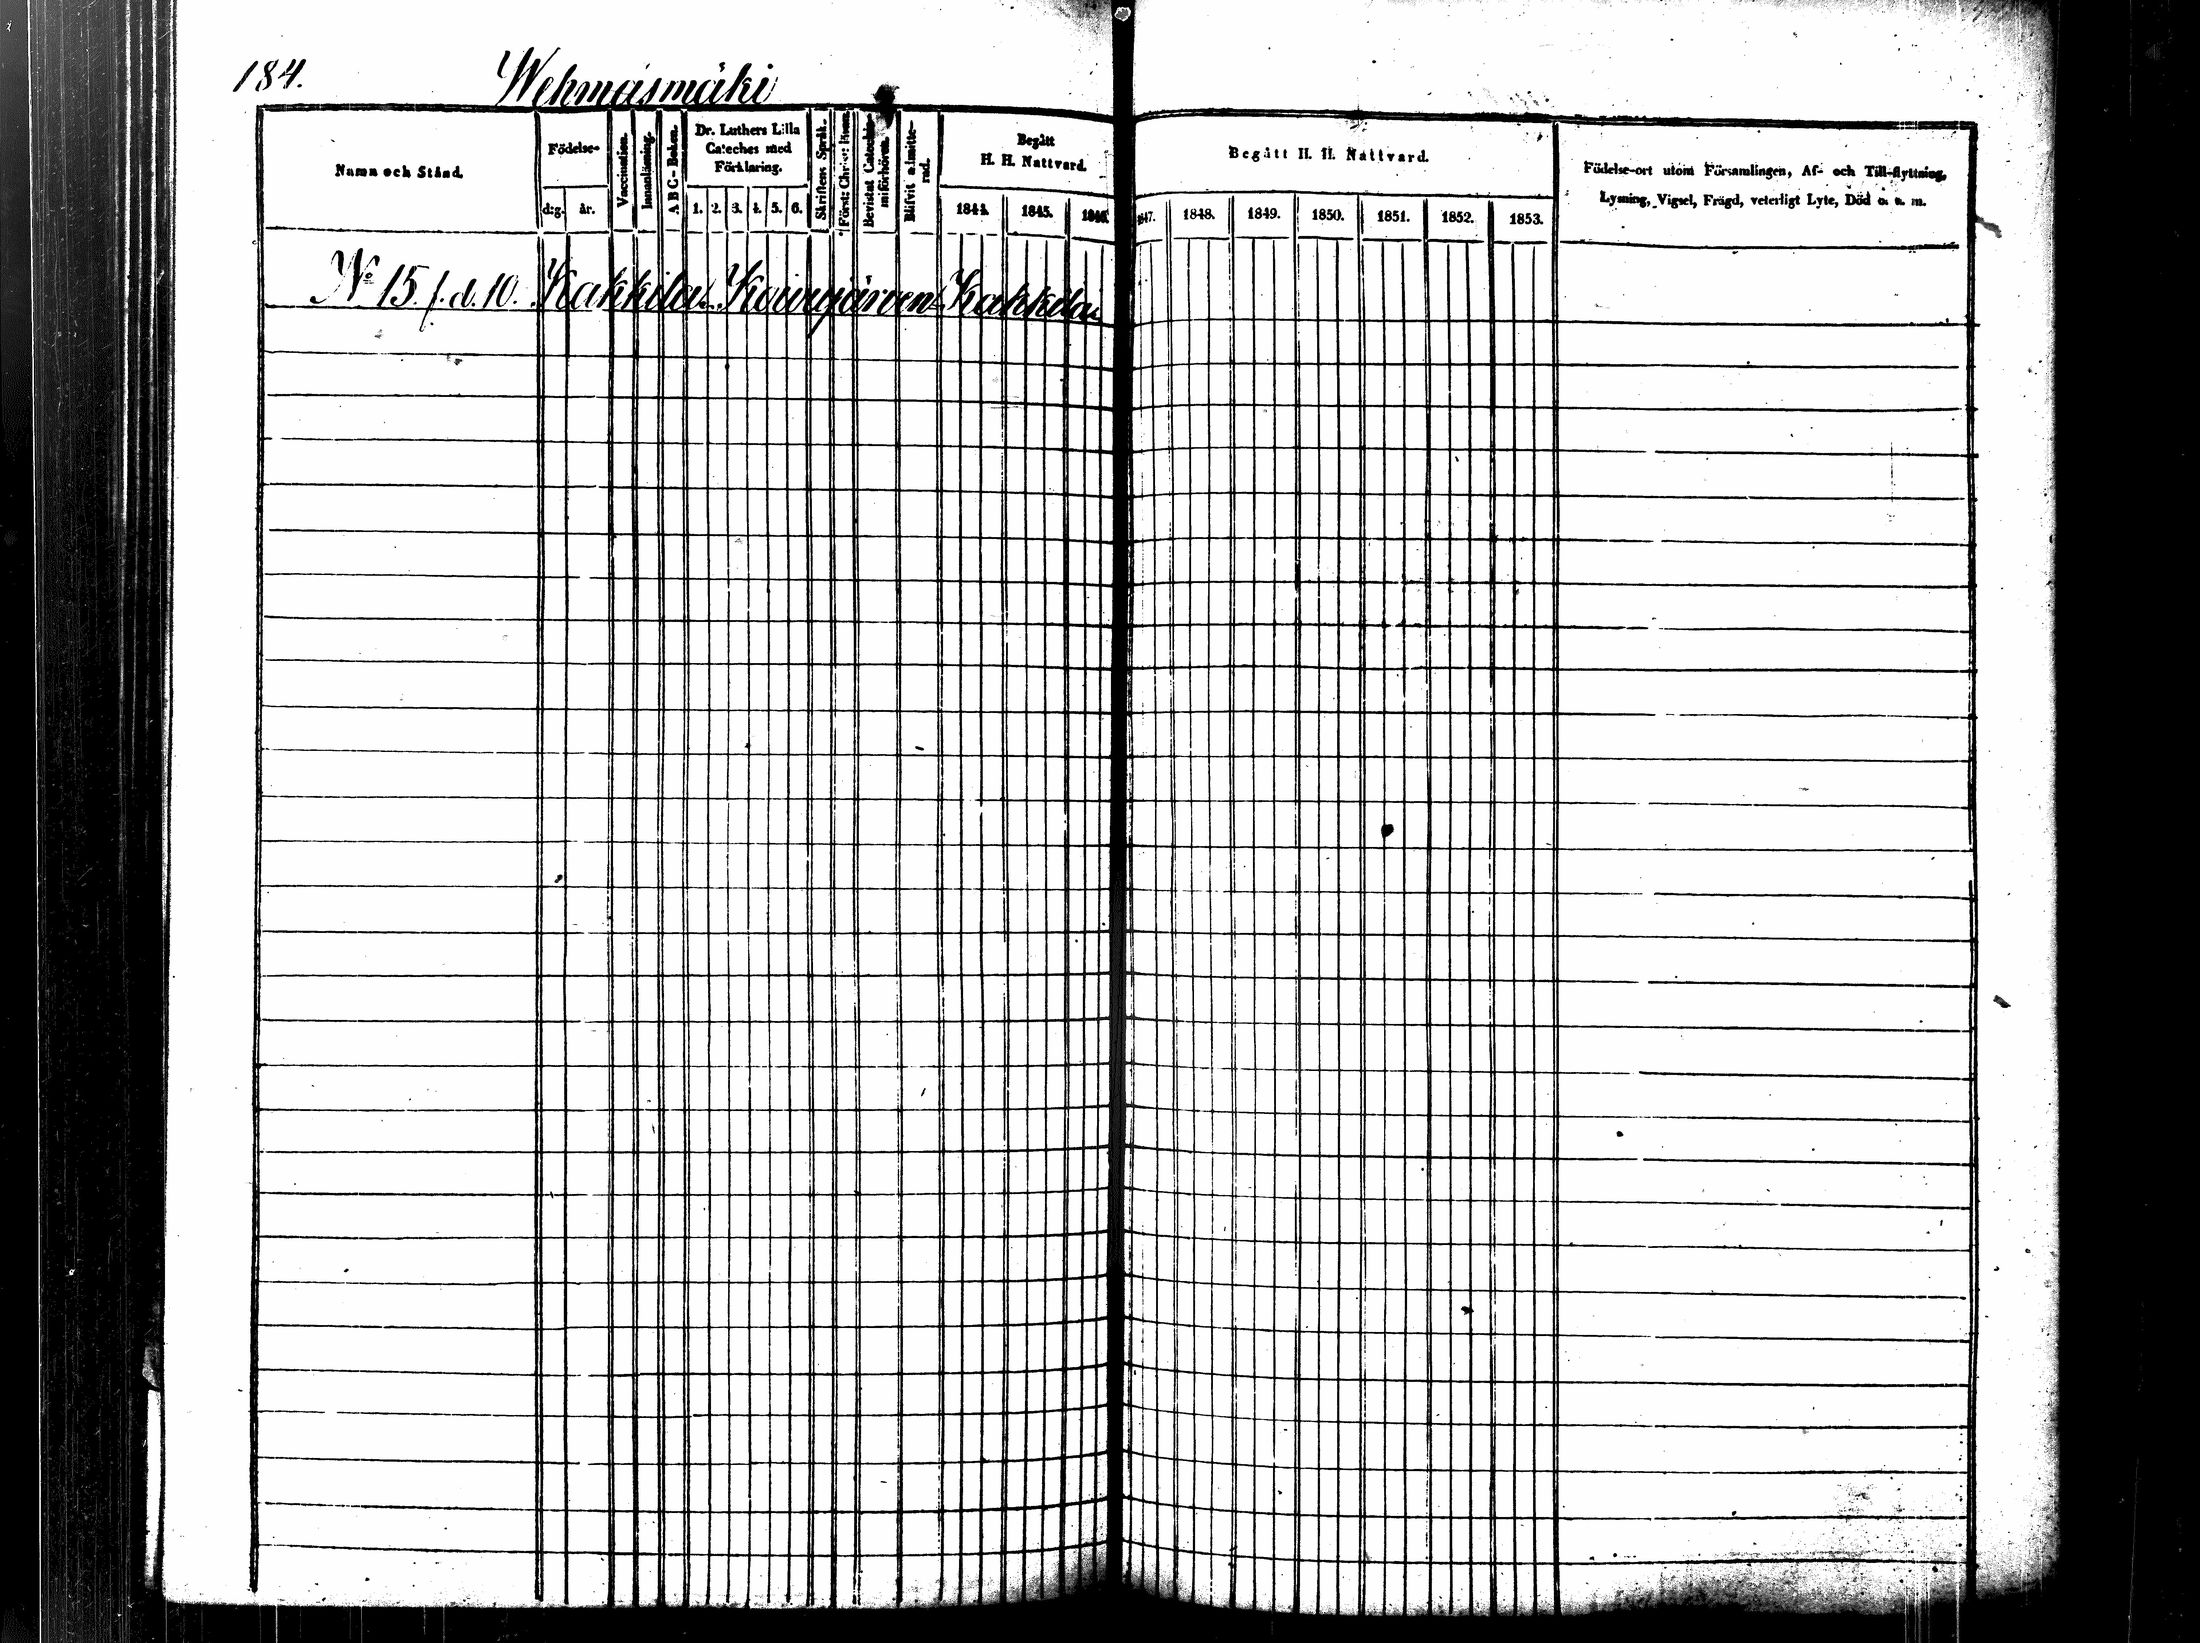 184. Wehmasmäki
Namn och Stånd.
Födelse-
d:g. år.
Vaccination.
Innanläsning.
A B C-Boken.
Dr. Luthers Lilla
Cateches med
Förklaring.
1. 2. 3. 4. 5. 6.
Skriftens Språk.
Bevistat Catechis-
miförhören.
Blifvit admitte-
rad.
Begått
H. H. Nattvard.
1844. 1845. 1846.
Begått H. H. Nattvard.
1847. 1848. 1849. 1850. 1851. 1852. 1853.
Födelse-ort utom Församlingen, Af- och Till-flyttning,
Lysning, Vigsel, Frägd, veterligt Lyte, Död o. s. m.
No 15. f. d. 10. Kakkila. Koirujärven Kakkila